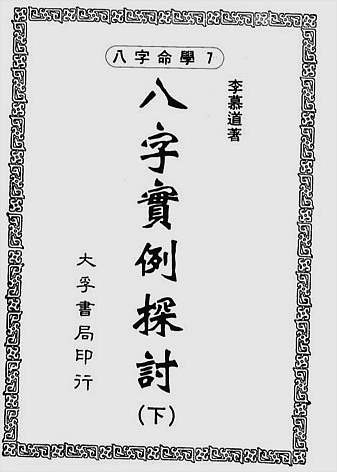 八字命學7
李慕道著
八字實例探討(下)
大孚書局印行